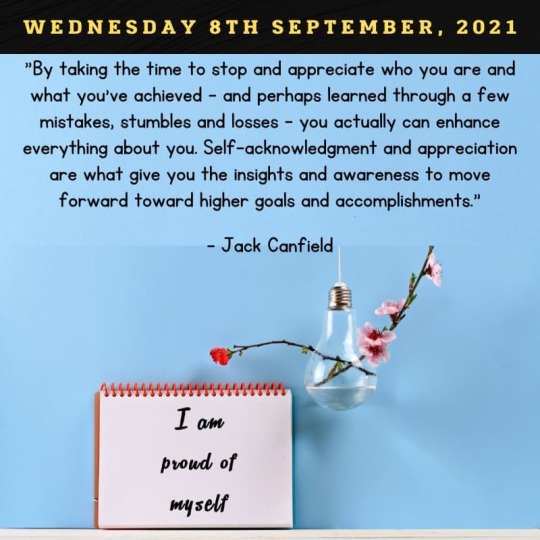 WEDNESDAY 8TH SEPTEMBER, 2021
"By taking the time to stop and appreciate who you are and
what you've achieved - and perhaps learned through a few
mistakes, stumbles and losses - you actually can enhance
everything about you. Self-acknowledgment and appreciation
are what give you the insights and awareness to move
forward toward higher goals and accomplishments."
- Jack Canfield
I am
proud of
myself